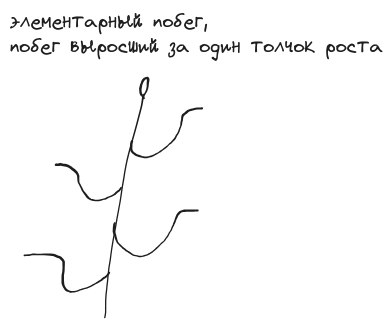 элементарный побег,
побег выросший за один толчок роста